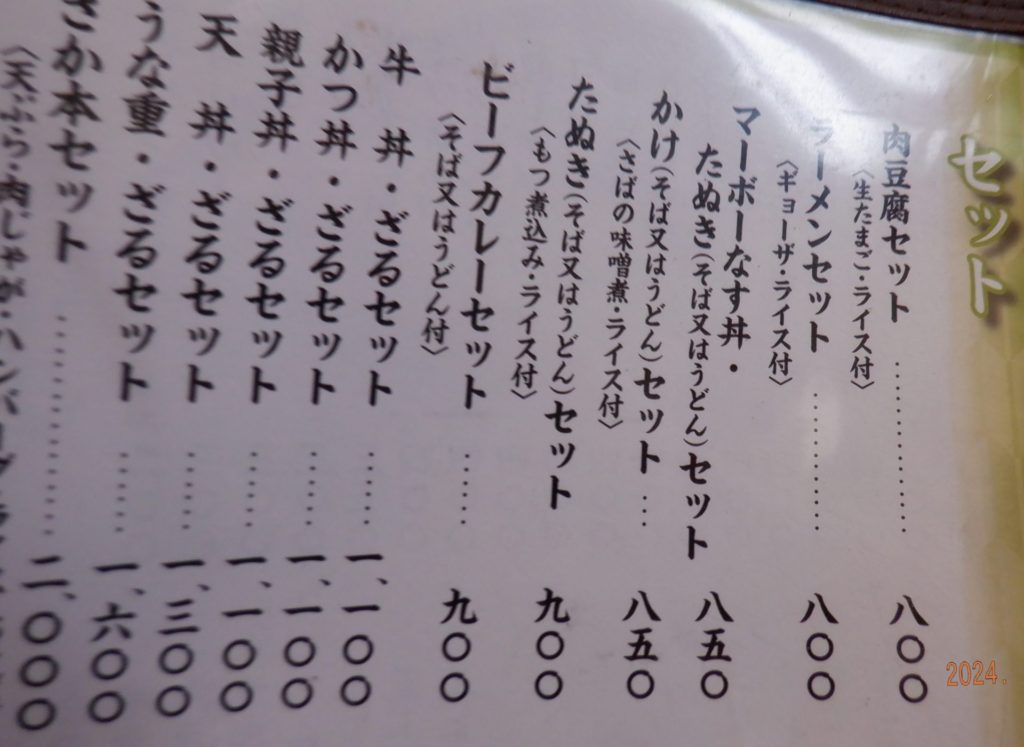 セット
肉豆腐セット…………八〇〇
〈生たまご・ライス付〉
ラーメンセット…………八〇〇
〈ギョーザ・ライス付〉
マーボーなす丼・
たぬき(そば又はうどん)セット 八五〇
かけ(そば又はうどん)セット…八五〇
〈さばの味噌煮・ライス付〉
たぬき(そば又はうどん)セット 九〇〇
〈もつ煮込み・ライス付〉
ビーフカレーセット……九〇〇
〈そば又はうどん付〉
牛丼・ざるセット……一、一〇〇
かつ丼・ざるセット……一、一〇〇
親子丼・ざるセット……一、一〇〇
天丼・ざるセット……一、三〇〇
うな重・ざるセット……一、六〇〇
さか本セット…………二、〇〇〇
〈天ぷら・肉じゃが・ハンバーグ・
2024.